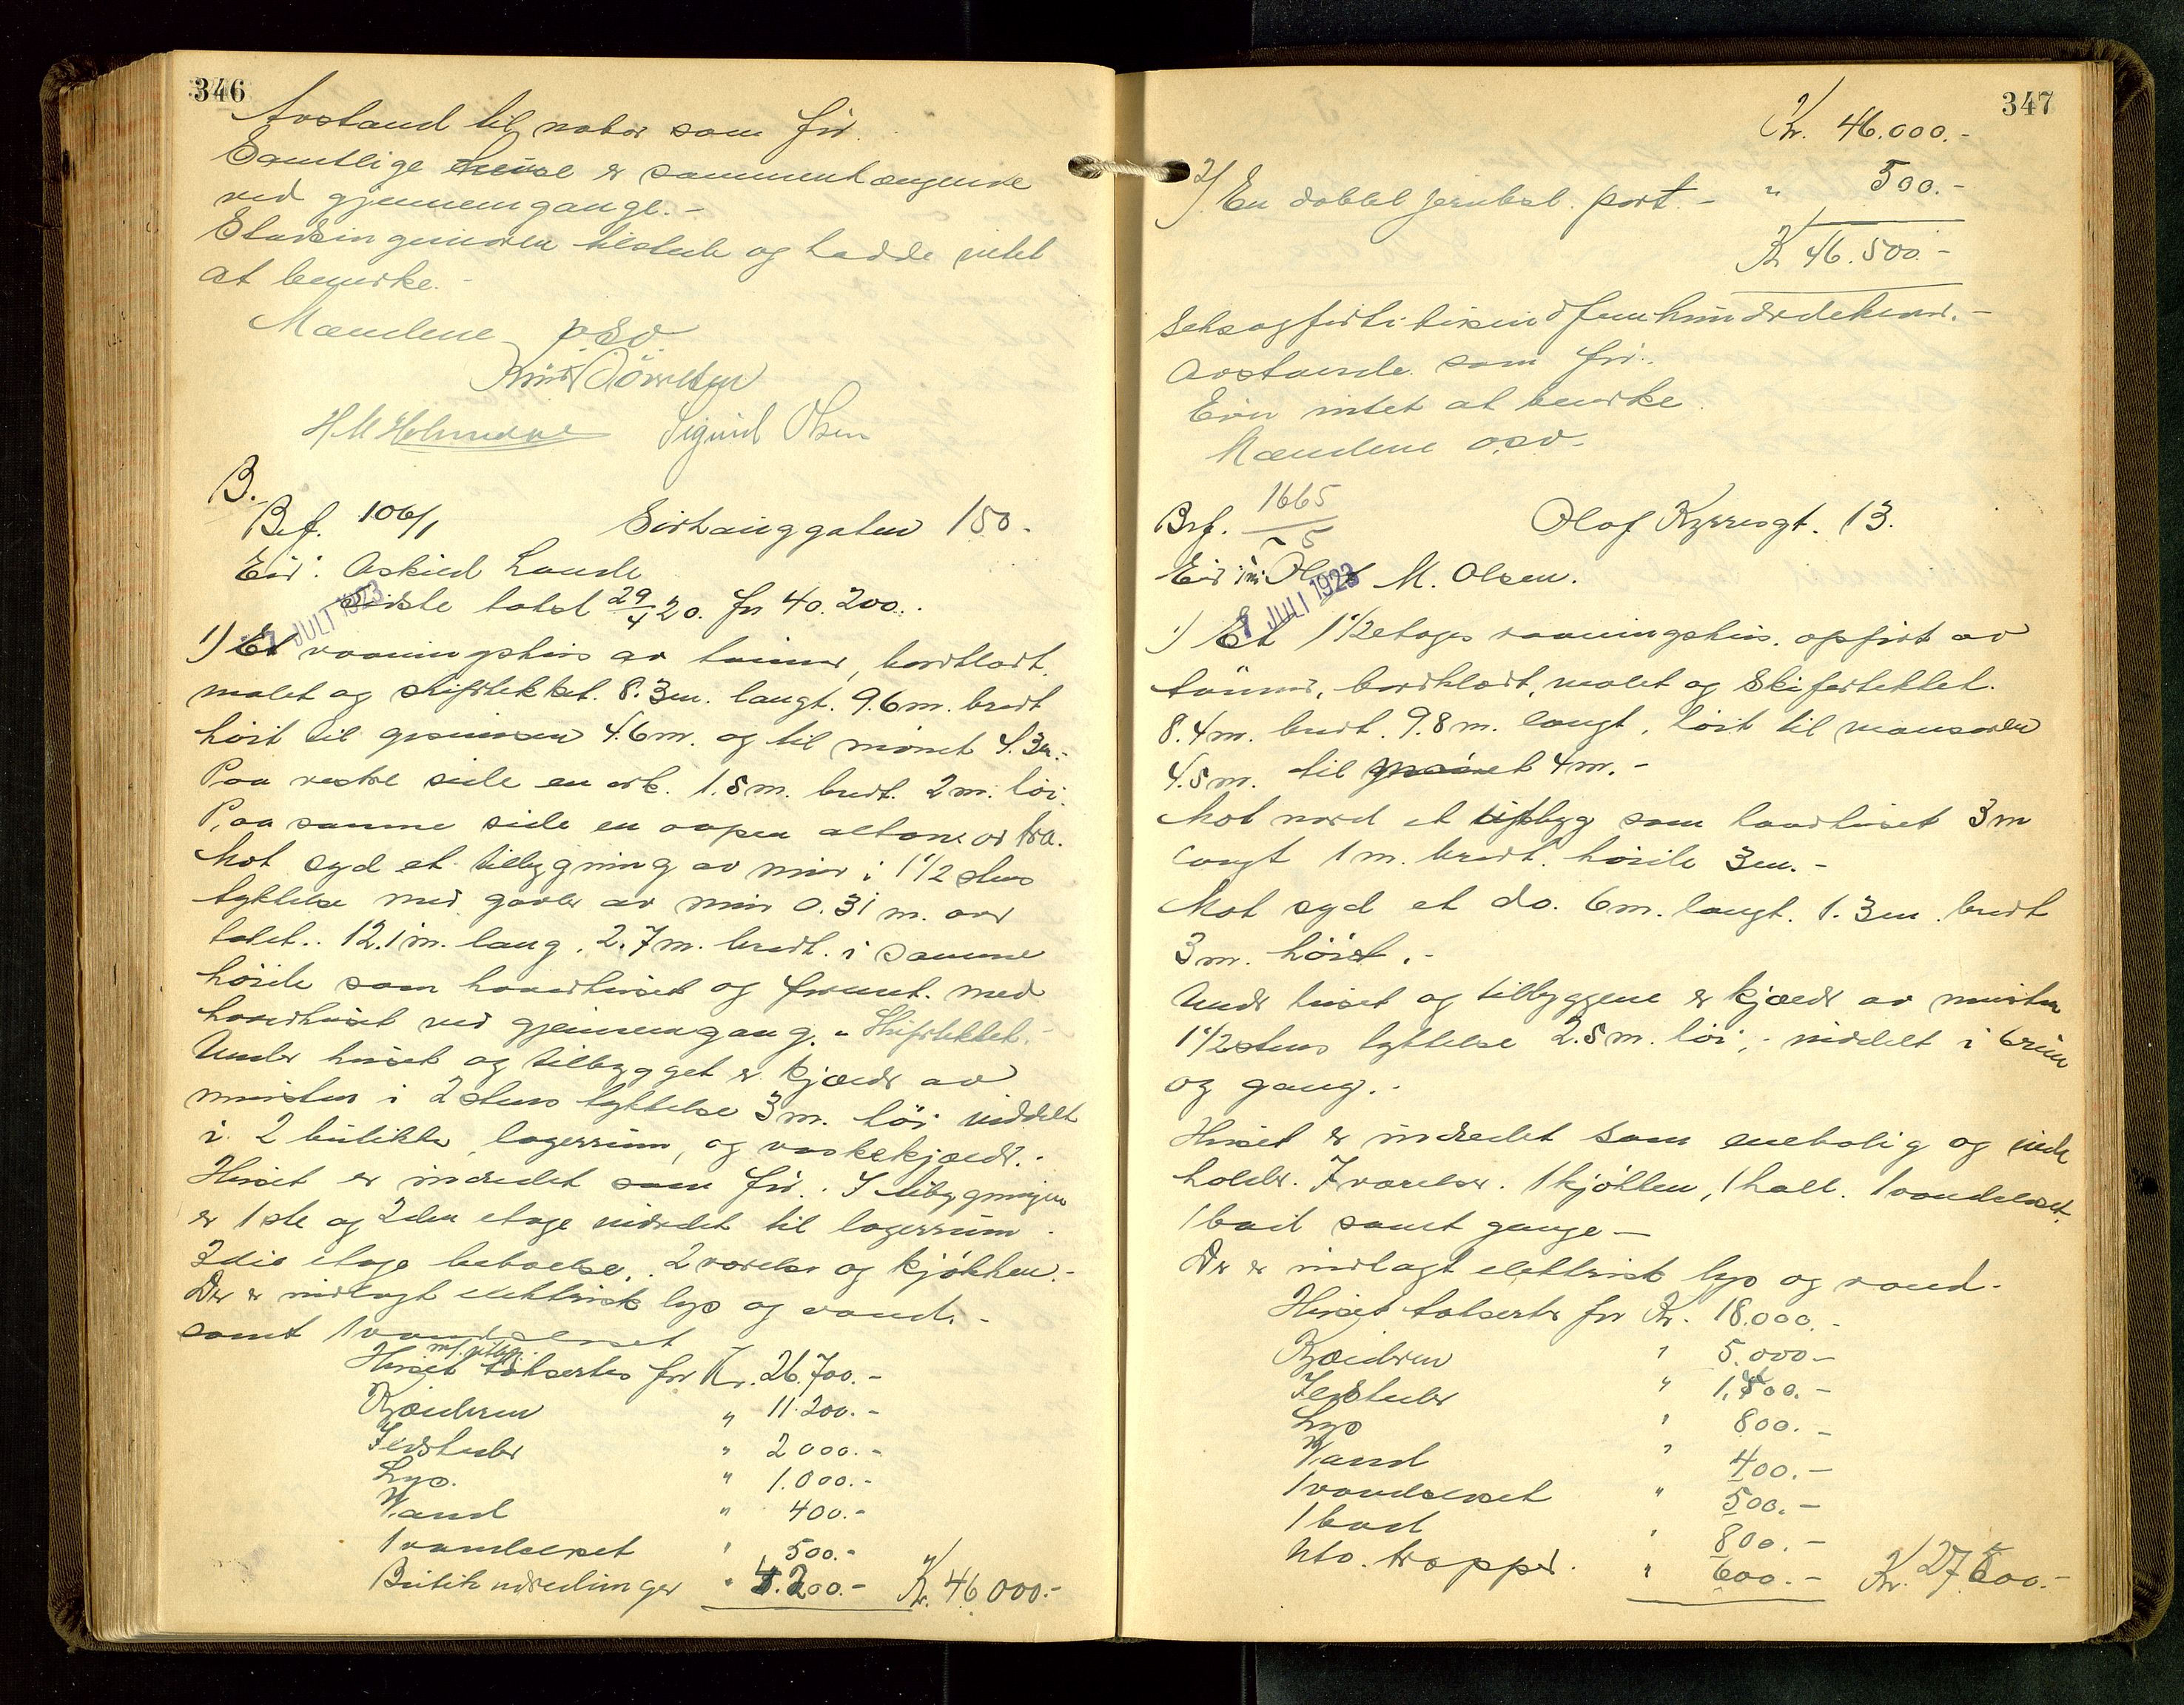 346
Avstand til nabo som før.
Samtlige huse er sammenhængende
ved gjennemgange.-
Stadsingeniøren tilstede og hadde intet
at bemerke.-
Mændene osv
H M Holmedal Sigurd Olsen
B.
Bef. 106/1 Sørhauggaten 150.
Eier: Askild Lande
Sidste takst 29/4 20. for 40.200..
7 JULI 1923
1) Et vaaningshus av tømmer, bordklædt,
malet og skifertekket. 8.3m. langt. 9.6m. bredt
høit til gesimsen 4.6m. og til mønet 4.3m.-
Paa vestre side en ark. 1.5m. bredt. 2m. høi.
Paa samme side en aapen altane av træ.
Mot syd et tilbygning av mur i 1 1/2 stens
tykkelse med gavler av mur 0.31m. over
taket.. 12.1m. lang. 2.7m. bredt. i samme
høide som hovedhuset og forent. med
hovedhuset ved gjennemgang. - Skifertekket.-
Under huset og tilbygget er kjælder av
mursten i 2 stens tykkelse 3m. høi inddelt
i 2 butikker, lagerrum, og vaskekjælder.-
Huset er indredet som før. I tilbygningen
er 1ste og 2den etage indredet til lagerrum.
3die etage beboelse, 2 værelser og kjøkken.-
Der er indlagt elektrisk lys og vand.-
samt 1 vandkloset
Huset m/. tilbyg. takseres for Kr. 26.700.-
Kjælderen " 11.200.-
Ildsteder " 2000.-
Lys. " 1.000.-
Vand " 400.-
1 vandkloset " 500.-
Butikindredninger " 4.200.- Kr. 46.000.-
347
Kr. 46.000.-
2) En dobbel jernbesl. port.- " 500.-
Kr 46.500.-
Seksogførtitusindfemhundredekroner.-
Avstande som før.
Eier intet at bemerke.
Mændene osv.
Bef. 1665/5 Olaf Kyrresgt. 13.
Eier M. Olsen.
7 JULI 1923
1) Et 1 1/2 etages vaaningshus. opført av
tømmer, bordklædt, malet og Skifertekket.
8.4m. bredt. 9.8m. langt, høit til mansarden
4.5m. til mønet 4m.-
Mot nord et utbyg som hovedhuset 3m
langt 1m. bredt. høide 3m.-
Mot syd et do. 6m. langt. 1.3m. bredt
3m. høist.-
Under huset og tilbyggene er kjælder av mursten
1 1/2 stens tykkelse 2.5m. høi,- inddelt i 6 rum
og gang.-
Huset er indredet som enebolig og inde
holder. 7 værelser. 1 kjøkken, 1 hall. 1 vandkloset,
1 bad samt gange-
Der er indlagt elektrisk lys og vand.-
Huset takseres for Kr. 18.000.-
Kjælderen " 5.000-
Ildsteder " 1.500.-
Lys " 800.-
Vand " 400.-
1 vandkloset " 500.-
1 bad " 800.-
Utv. trapper. " 600.- Kr. 27.600.-